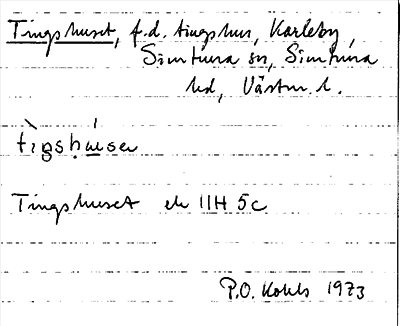 Tingshuset, f.d. tingshus, Karleby,
Simtuna sn, Simtuna
hd, Västm. l.
tìgshúsen
Tingshuset ek 11H 5c
P.O. Kohls 1973